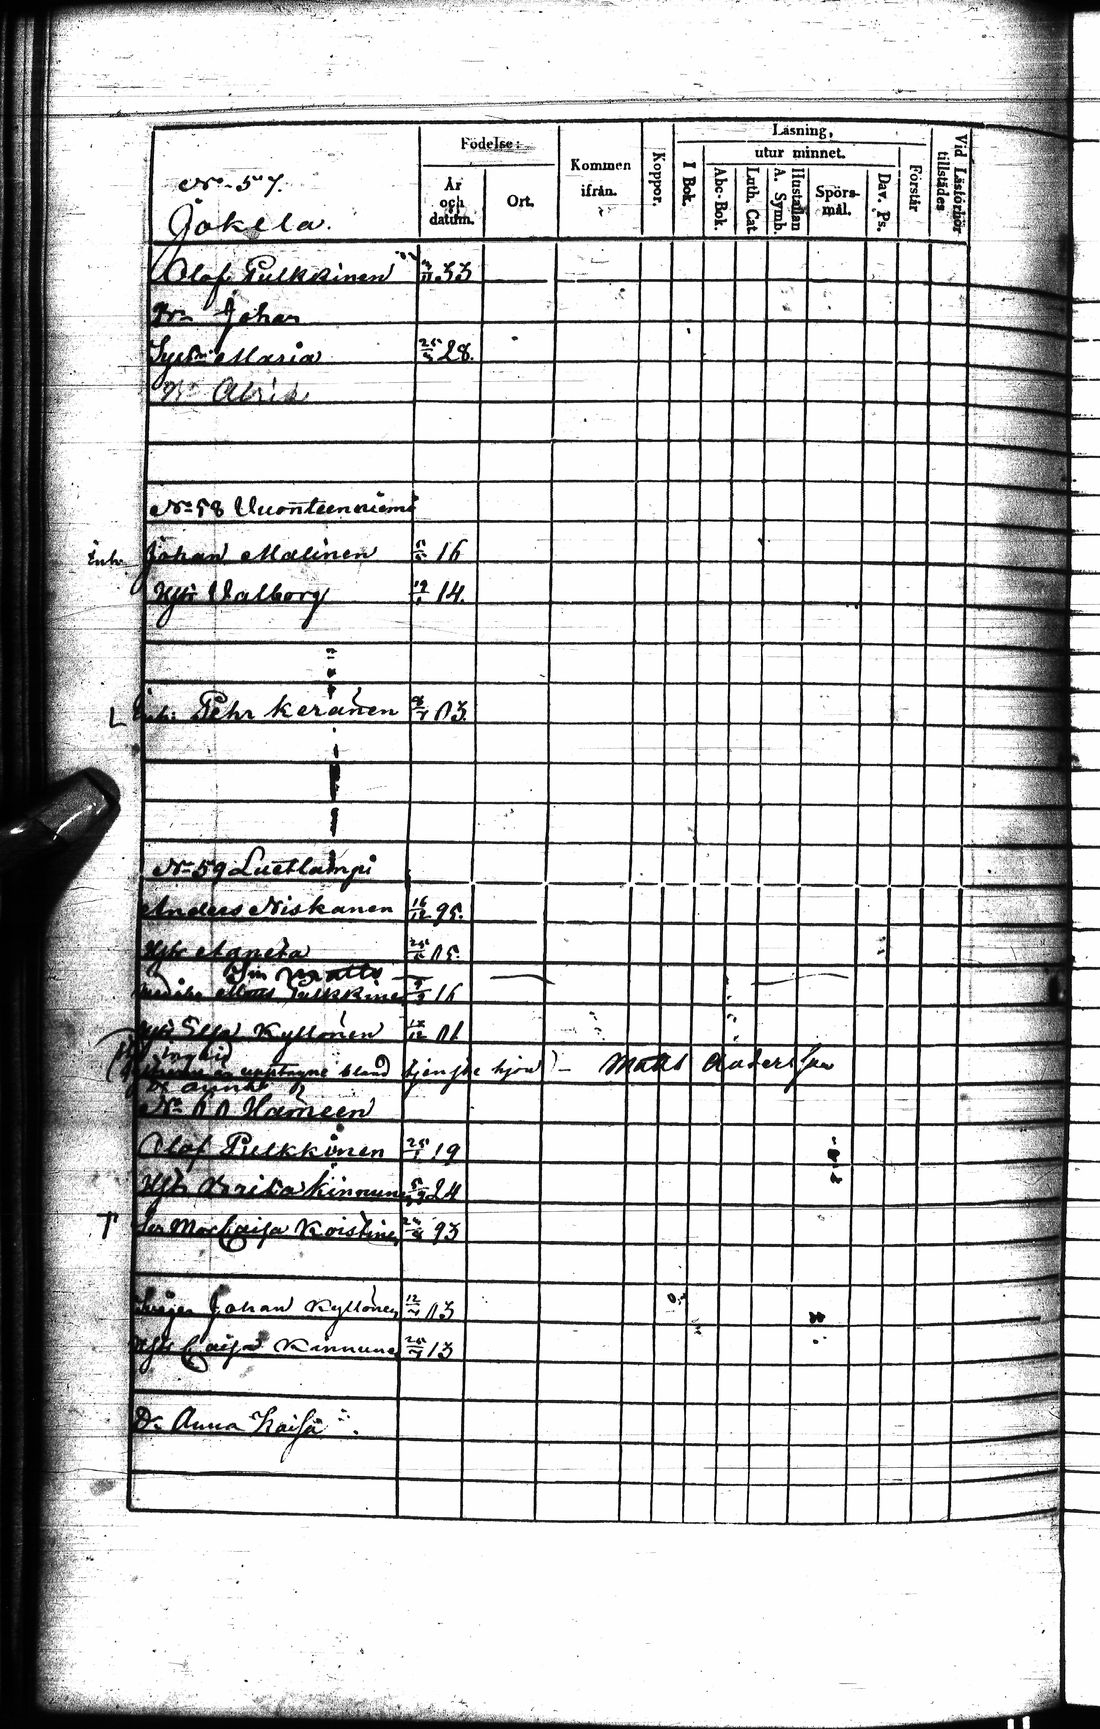 No 57.
Jokela.
Födelse:
År och datum.
Ort.
Kommen ifrån.
Koppor.
Läsning,
utur minnet.
I Bok.
Abc-Bok.
Luth. Cat.
Hustaflan A. Symb.
Spörs-mål.
Dav. Ps.
Förstår
Vid Läsförhör tillstädes
Olof Pulkkinen 33
Br. Johan
Syst. Maria 25 28.
No 58 Vuonteenniemi
Inh. Johan Malinen 16
Hstr Valborg 12 14.
L Inh: Pehr Keränen 03.
No 59 Luetlampi
Anders Niskanen 16/12 95.
Hstr Agneta 25 05.
Matts
Matts Pulkkinen 16
Kyllönen
upptagne bland tjenste hjon) - Matts Andersson
No 60 Hameen
Olof Pulkkinen 25/1 19
Hstr Brita Kinnunen 24
T Mor Caisa Koistinen 93
Johan Kyllönen 12 03
Hstr Caisa Kinnunen 25 13
D. Anna Kaisa